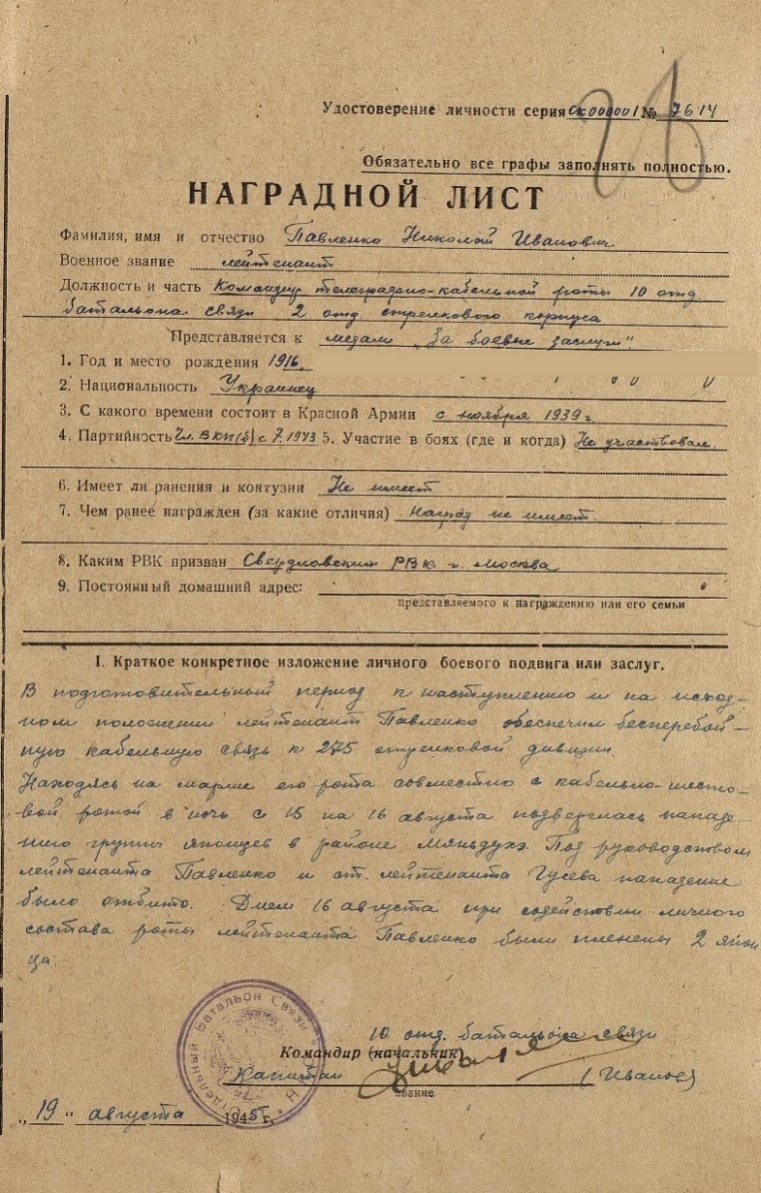 Удостоверение личности серия ск 000001 № 7614
26
Обязательно все графы заполнять полностью.
НАГРАДНОЙ ЛИСТ
Фамилия, имя и отчество Павленко Николай Иванович
Военное звание лейтенант
Должность и часть Командир телеграфно-кабельной роты 10 отд.
батальона связи 2 отд стрелкового корпуса
Представляется к медали „За боевые заслуги“.
1. Год и место рождения 1916.
2. Национальность Украинец
3. С какого времени состоит в Красной Армии с ноября 1939 г.
4. Партийность Чл. ВКП(б) с 7.1943 5. Участие в боях (где и когда) Не участвовал.
6. Имеет ли ранения и контузии Не имеет
7. Чем ранее награжден (за какие отличия) Наград не имеет.
8. Каким РВК призван Свердловским РВК г. Москва
9. Постоянный домашний адрес:
представляемого к награждению или его семьи
I. Краткое конкретное изложение личного боевого подвига или заслуг.
В подготовительный период к наступлению и на исход-
ном положении лейтенант Павленко обеспечил бесперебой-
ную кабельную связь к 275 стрелковой дивизии.
Находясь на марше его рота совместно с кабельно-шесто-
вой ротой в ночь с 15 на 16 августа подверглась нападе-
нию группы японцев в районе Мяньдухэ. Под руководством
лейтенанта Павленко и ст. лейтенанта Гусева нападение
было отбито. Днем 16 августа при содействии личного
состава роты лейтенанта Павленко были пленены 2 япон
ца.
10 отд. батальона связи
Командир (начальник)
Капитан (Иванов)
звание
„19“ августа 1945 г.
Отдельный Батальон Связи